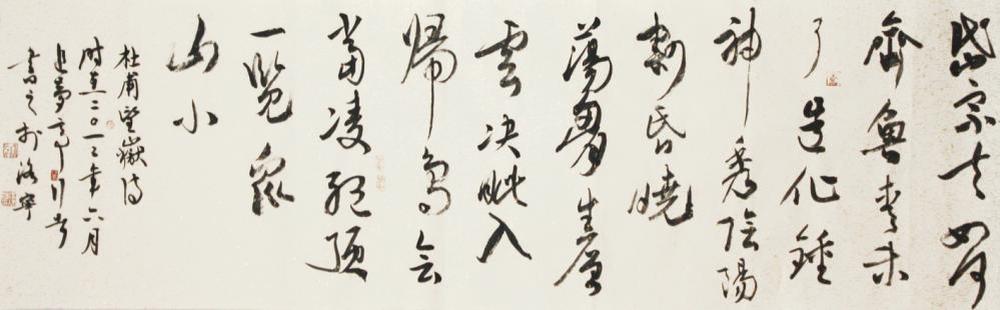 岱宗夫如何
齊魯青未
了造化鍾
神秀陰陽
割昏曉
蕩胸生層
雲决眥入
帰鳥会
當凌絕頂
一覽眾
山小
杜甫望嶽詩
时在二〇一二年六月
追夢亭
書之於洛寧